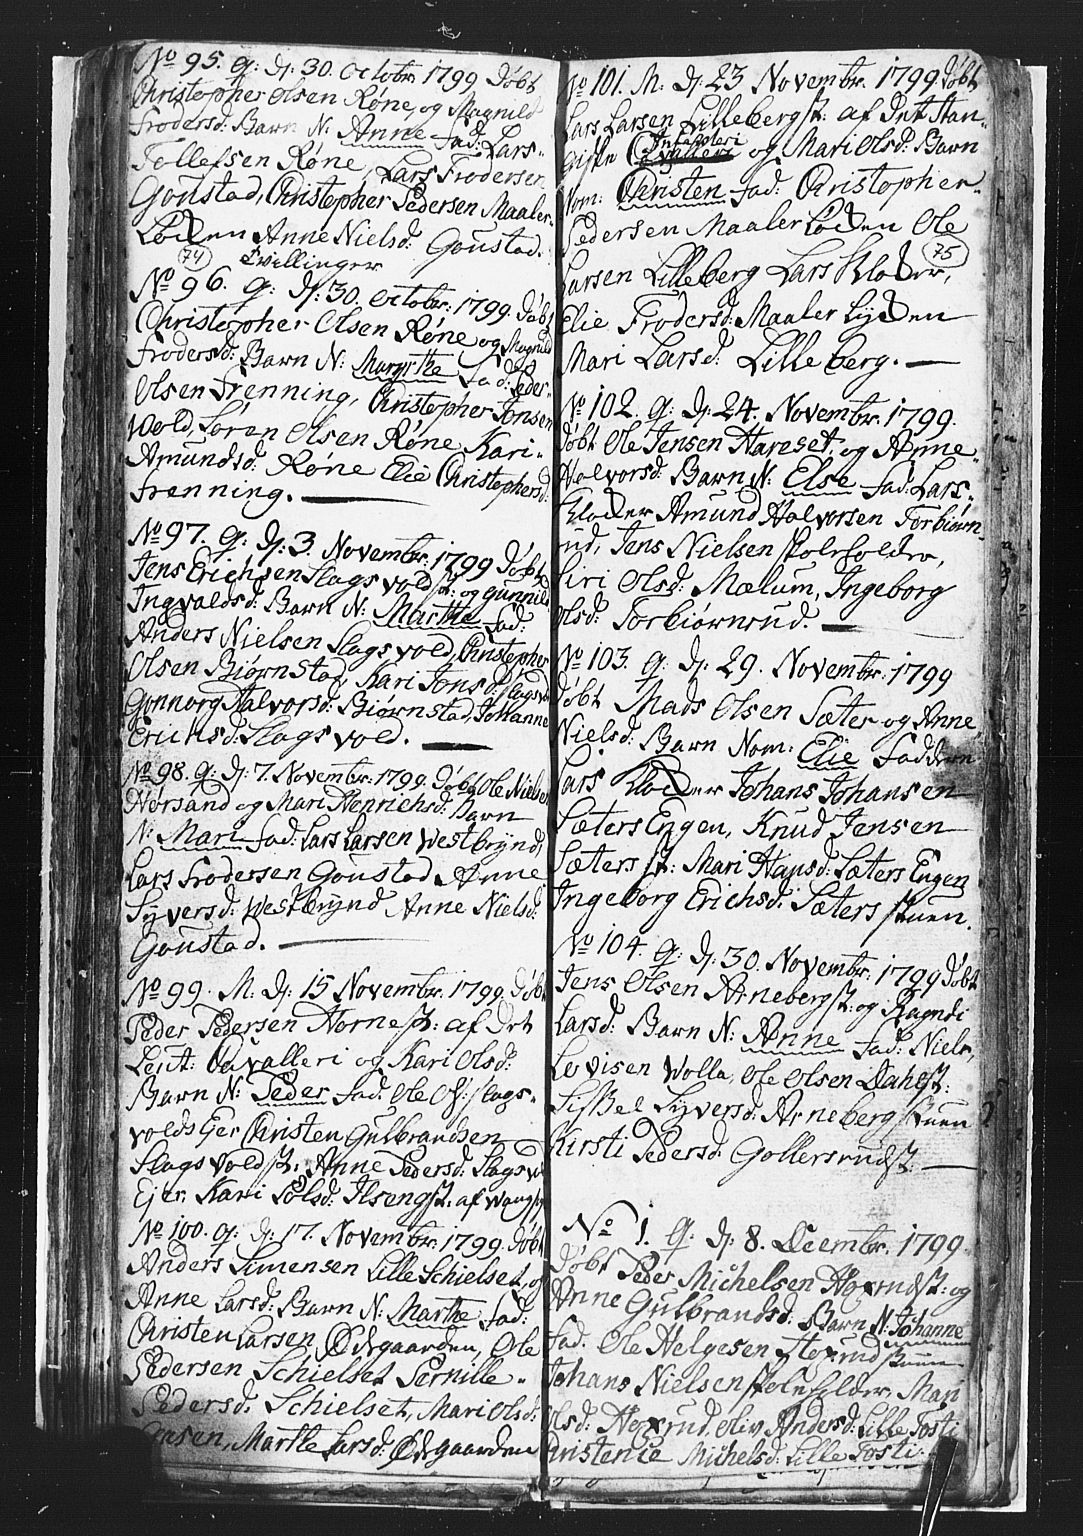 No 95. q: dj: 30. Octobr: 1799 Døbt
Christopher Olsen Røne, og Magnild
Frodersd: Barn N: Anne fad: Lars
Tollefsen Røne, Lars Frodersen
Goustad, Christopher Pedersen Maaler-
Lødden Anne Nielsd: Goustad.
74
Tvillinger
No 96. q: dj: 30. Octobr: 1799. Døbt
Christopher Olsen Røne og Magnild
Frodersd: Barn N: Margrethe fad: Peder
Olsen Frenning, Christopher Jonsen
Wold, Søren Olsen Røne Kari
Amundsd: Røne Elie Christophersd:
Frenning.
No 97. q: dj: 3. Novembr: 1799 Døbt
Jens Erichsen Slagsvoldst: og Gunnild
Ingvaldsd: Barn N: Marthe fad:
Anders Nielsen Slagsvold, Christopher
Olsen Biørnstad, Kari Jonsd: Slagsvold
Gonnorg Halvorsd: Biørnstad, Johanne
Erichsd: Slagsvold.
No 98. q: dj: 7. Novembr: 1799. Døbt Ole Nielsen
Horsand og Mari Henrichsd: Barn
N: Mari fad: Lars Larsen Westbrynd,
Lars Frodersen Goustad Anne
Syversd: Westbrynd Anne Nielsd:
Goustad.
No 99. M: dj: 15 Novembr: 1799. Døbt
Peder Pedersen Hornest: af Det
Leut: Cavalleri og Kari Olsd:
Barn N: Peder fad: Ole Ols: Slags-
volds Ejer Christen Gulbrandsen
Slagsvoldst: Anne Pedersd: Slagsvold
Ejer. Kari Polsd: Ilsengst: af Wang
No 100. q: dj: 17. Novembr: 1799. Døbt
Anders Simensen Lille Schielset, og
Anne Larsd: Barn N: Marthe fad:
Christen Larsen, Ødegaarden, Ole
Pedersen Schielset Pernille
Pedersd: Schielset, Mari Olsd:
Marthe Larsd: Ødegaarden
No 101. M: dj: 23 Novembr: 1799. Døbt
Lars Larsen Lillebergst: af Det Stan-
Infanteri
giske og Mari Olsd: Barn
Nom: Christen fad: Christopher
Pedersen Maaler Lødden Ole
75
Larsen Lilleberg Lars Klocker,
Elie Frodersd: Maaler Lydden
Mari Larsd: Lilleberg.
No 102. q: dj: 24. Novembr: 1799.
Døbt Ole Jensen Hareset, og Anne
Halvorsd: Barn N: Else fad: Lars
Klocker Amund Halvorsen Torbiørn-
rud, Jens Nielsen skoleholder,
Siri Olsd: Mælum, Ingeborg
Olsd: Torbiørnrud.
No 103. q: dj: 29. Novembr: 1799
Døbt Mads Olsen Sæter og Anne
Nielsd: Barn Nom: Elie faddere
Lars Klocker Johans Johansen
Sæters Engen, Knud Jensen
Sæters st: Mari Hansd: Sæters Engen
Ingeborg Erichsd: Sæters stuen.
No 104. q: dj: 30. Novembr: 1799 Døbt
Jens Olsen Arnebergst: og Ragndi
Larsd: Barn N: Anne fad: Niels
Lovisen Wolla, Ole Olsen Dahlst:
Sissel Syversd: Arneberg stuen
Kirsti Pedersd: Gollersrudst:
No 1. q: dj: 8. Decembr: 1799.
Døbt Peder Michelsen Hoxrudst: og
Anne Gulbrandsd: Barn N: Johanne
fad: Ole Helgesen Hoxrudstuen
Johans Nielsen skoleholder, Mari
Olsd: Hoxrud, Oliv Andersd: Lille Tosti
Christence Michelsd: Lille Tosti: